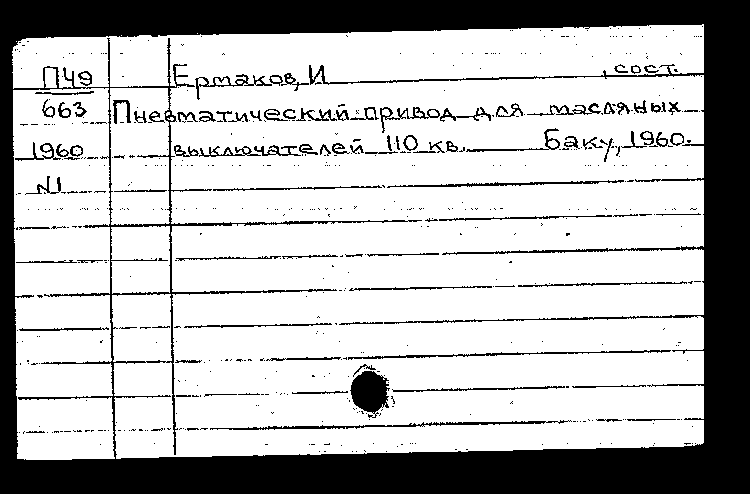 П49 Ермаков, И , сост.
663 Пневматический привод для масляных
1960 выключателей 110 кв. Баку, 1960.
N1